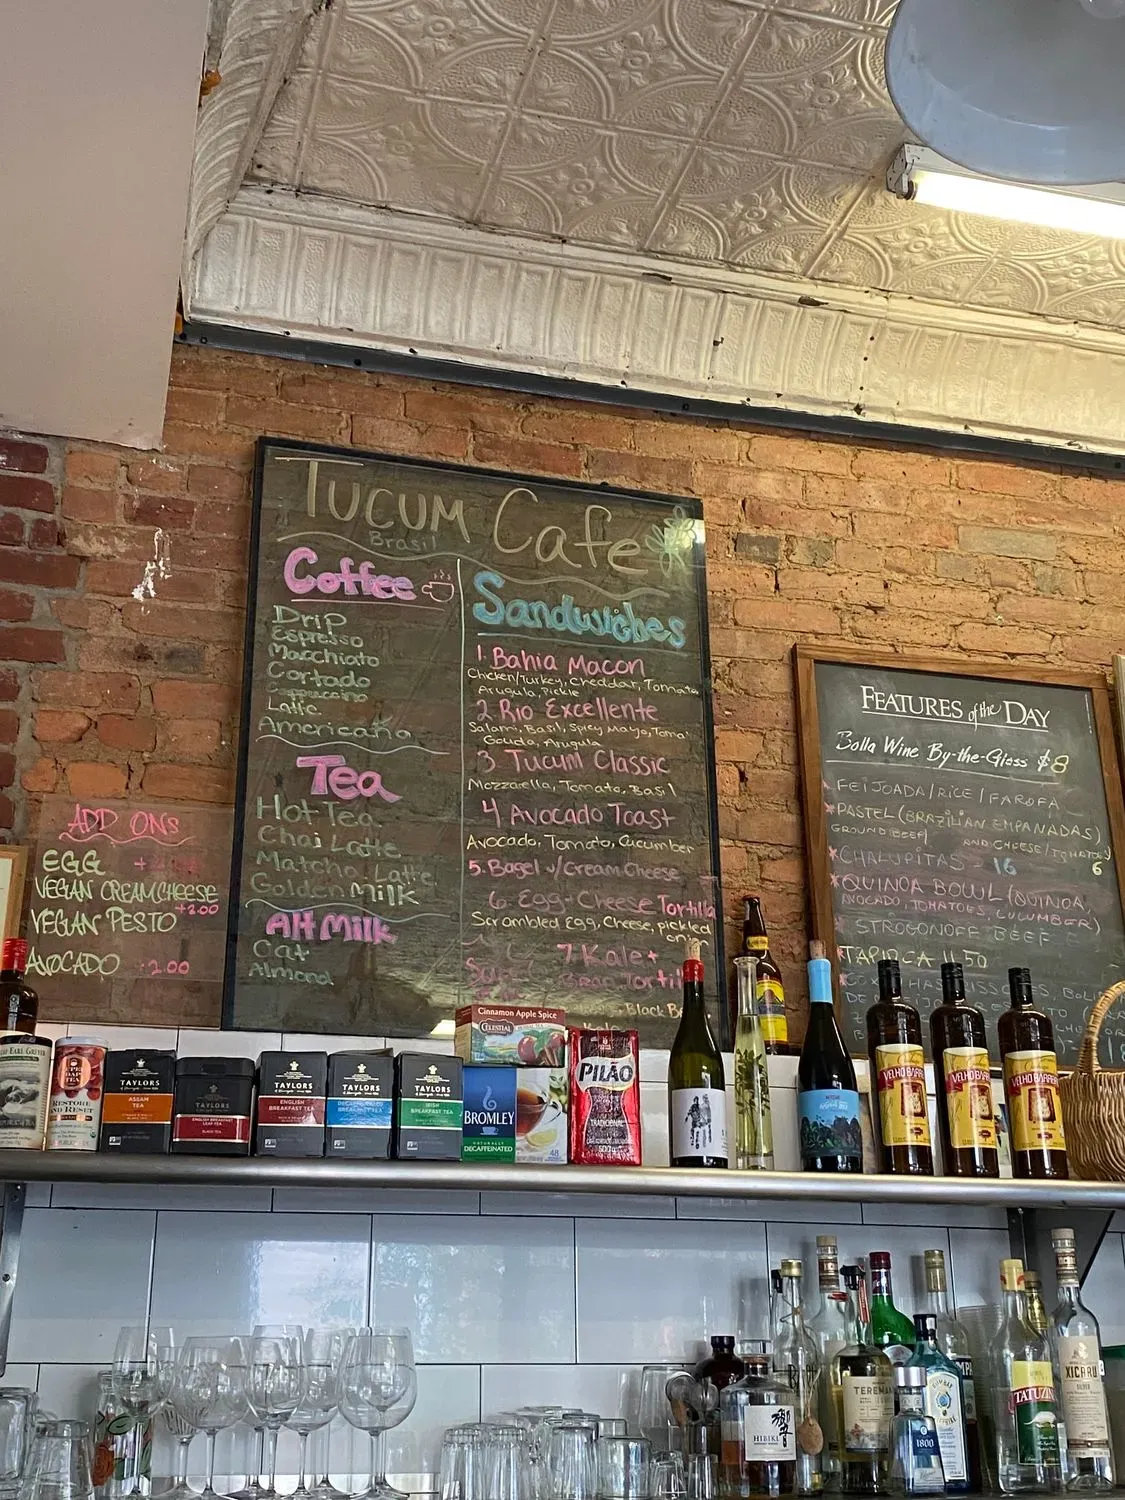 TUCUM Cafe
Brasil
Coffee
Drip
Espresso
Macchiato
Cortado
Cappuccino
Latte
Americana
Tea
Hot Tea
Chai Latte
Matcha Latte
Golden Milk
Alt Milk
Oat
Almond
Sandwiches
1 Bahia Macon
Chicken/Turkey, Cheddar, Tomato
Arugula, Pickle
2 Rio Excellente
Salami, Basil, Spicy Mayo, Toma
Gouda, Arugula
3 Tucum Classic
Mozzarella, Tomato, Basil
4 Avocado Toast
Avocado, Tomato, Cucumber
5. Bagel w/Cream Cheese
6 Egg + Cheese Tortilla
Scrambled Egg, Cheese, pickled
onion
7 Kale +
Bean Tortill
Black Be
ADD ONS
EGG
VEGAN CREAMCHEESE
+2.00
VEGAN PESTO
AVOCADO 2.00
FEATURES of the DAY
Bolla Wine By-the-Glass $8
FEIJOADA/RICE/FAROFA
*PASTEL (BRAZILIAN EMPANADAS)
GROUND BEEF/ AND CHEESE/TOMATOS
*CHALUPITAS 16 6
*QUINOA BOWL (QUINOA,
AVOCADO, TOMATOES, CUCUMBER)
* STROGONOFF BEEF
*TAPIOCA 11.50
EARL GREY
RESTORE
AND RESET
TAYLORS
ASSAM
TEA
TAYLORS
ENGLISH BREAKFAST
LEAF TEA
TAYLORS
ENGLISH
BREAKFAST TEA
TAYLORS
TAYLORS
IRISH
BREAKFAST TEA
Cinnamon Apple Spice
CELESTIAL
BROMLEY
NATURALLY
DECAFFEINATED
48
PILÃO
TRADICIONAL
VELHO BARREIRO
VELHO BARREIRO
VELHO BARREIRO
HIBIKI
響
TEREMANA
1800
BOMBAY
TATUZINHO
XICARU
SILVER